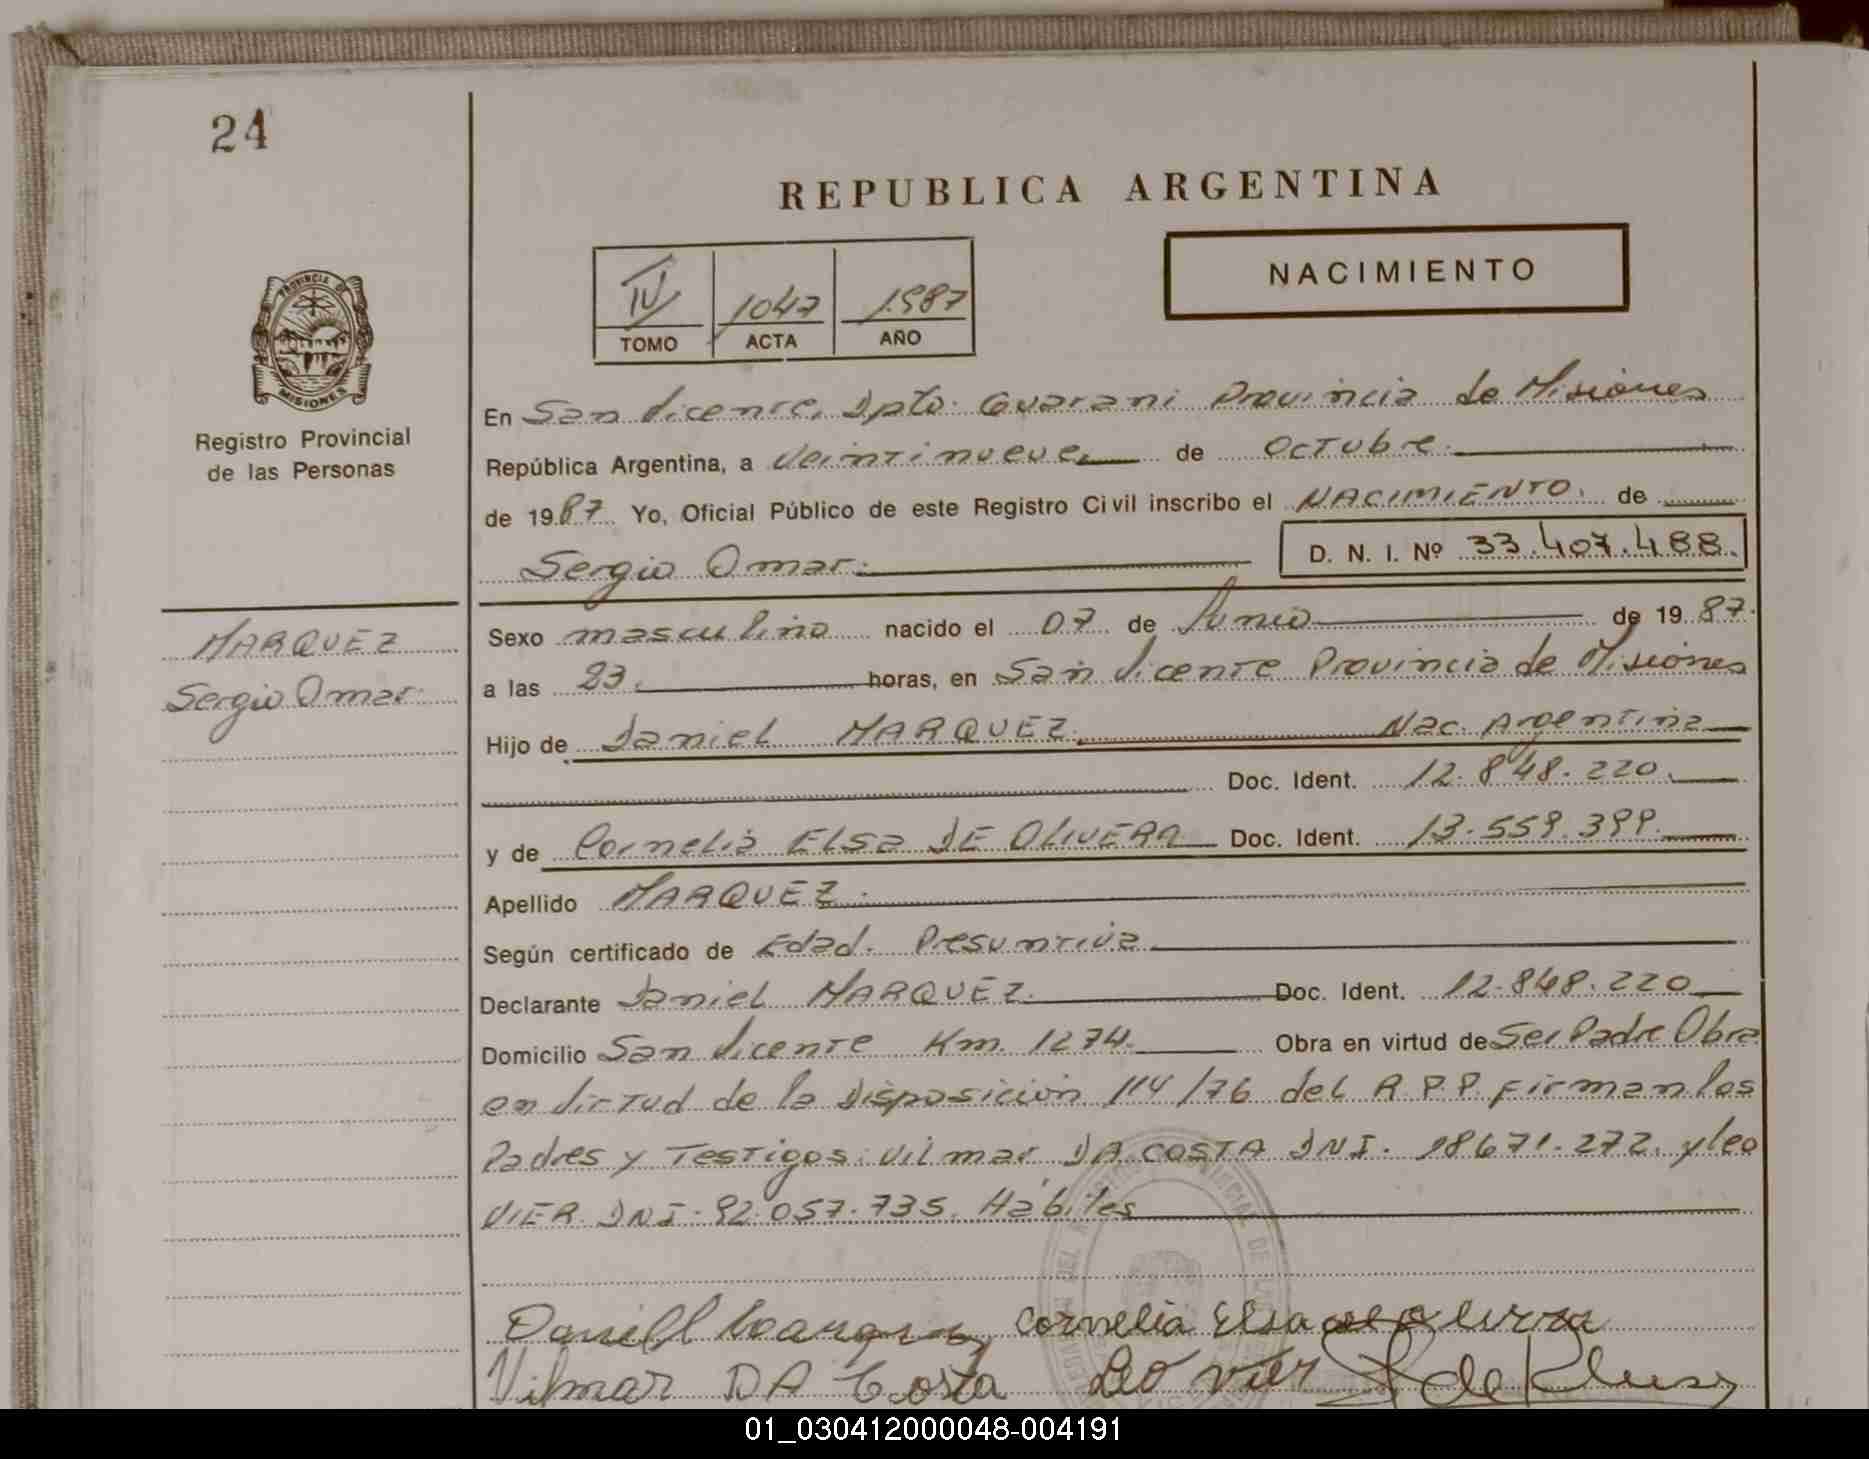 24
REPUBLICA ARGENTINA
NACIMIENTO
IV 1047 1987
TOMO ACTA AÑO
PROVINCIA DE
MISIONES
Registro Provincial
de las Personas
En San Vicente, Dpto. Guarani Provincia de Misiones
República Argentina, a Veintinueve, de Octubre.
de 1987. Yo, Oficial Público de este Registro Civil inscribo el NACIMIENTO. de
Sergio Omar. D. N. I. Nº 33.407.488.
MARQUEZ
Sergio Omar.
Sexo masculino nacido el 07 de Junio de 1987.
a las 23. horas, en San Vicente Provincia de Misiones
Hijo de Daniel MARQUEZ. Nac. Argentina
Doc. Ident. 12.848.220.
y de Cornelia ELSa DE OLIVERA Doc. Ident. 13.559.399.
Apellido MARQUEZ.
Según certificado de Edad. Presuntiva
Declarante Daniel MARQUEZ. Doc. Ident. 12.848.220
Domicilio San Vicente Km. 1274. Obra en virtud de Ser Padre Obra
en Virtud de la Disposición 114/76 del R.P.P. Firman los
Padres y Testigos: Vilmar DA COSTA DNI. 18671.272. y leo
VIER DNI. 92.057.735. Hábiles
Cornelia Elsa de Olivera
Vilmar DA Costa Leo vier
01_030412000048-004191